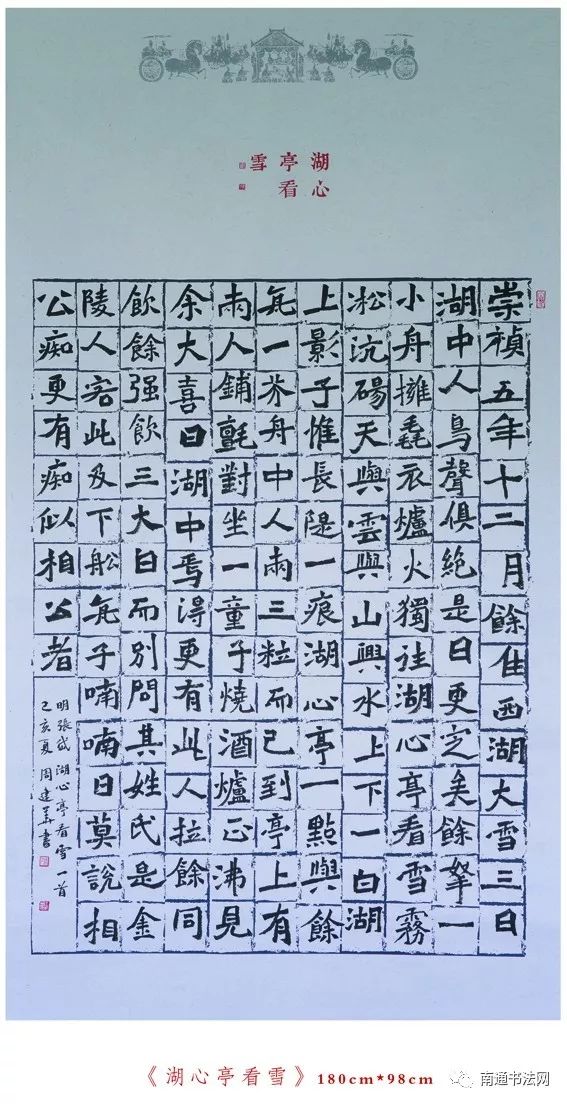 湖心
亭看
雪
崇禎五年十二月餘住西湖大雪三日
湖中人鳥聲俱絶是日更定矣餘拏一
小舟擁毳衣爐火獨往湖心亭看雪霧
淞沆碭天與雲與山與水上下一白湖
上影子惟長隄一痕湖心亭一點與餘
舟一芥舟中人兩三粒而已到亭上有
兩人鋪氈對坐一童子燒酒爐正沸見
余大喜曰湖中焉得更有此人拉餘同
飲餘强飲三大白而別問其姓氏是金
陵人客此及下舩舟子喃喃曰莫說相
公痴更有痴似相公者
明張岱湖心亭看雪一首
己亥夏周建華書
《湖心亭看雪》180cm*98cm
南通书法网